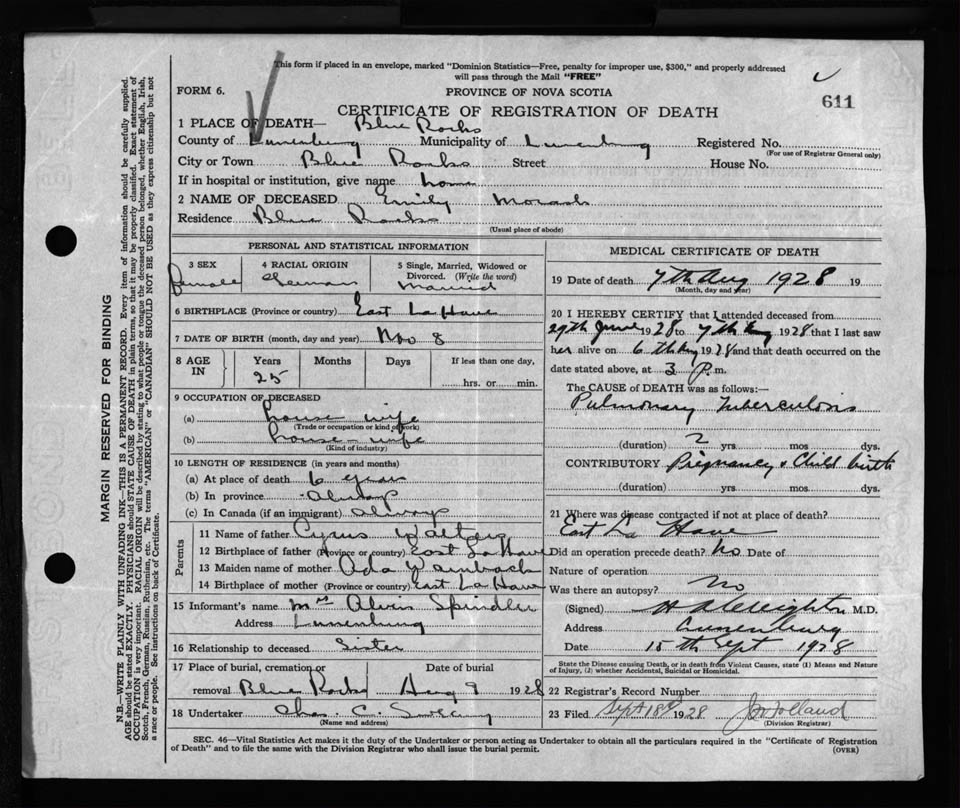 This form if placed in an envelope, marked "Dominion Statistics—Free, penalty for improper use, $300," and properly addressed
will pass through the Mail "FREE"
FORM 6.
PROVINCE OF NOVA SCOTIA
611
CERTIFICATE OF REGISTRATION OF DEATH
1 PLACE OF DEATH— Blue Rocks
County of Lunenburg Municipality of Lunenburg Registered No.
(For use of Registrar General only)
City or Town Blue Rocks Street House No.
If in hospital or institution, give name home
2 NAME OF DECEASED Emily Morash
Residence Blue Rocks
(Usual place of abode)
PERSONAL AND STATISTICAL INFORMATION
3 SEX 4 RACIAL ORIGIN 5 Single, Married, Widowed or
Divorced. (Write the word)
female German married
6 BIRTHPLACE (Province or country) East La Have
7 DATE OF BIRTH (month, day and year) Nov 8
8 AGE IN Years Months Days If less than one day,
25 hrs. or min.
9 OCCUPATION OF DECEASED
(a) house wife
(Trade or occupation or kind of work)
(b) house-wife
(Kind of industry)
10 LENGTH OF RESIDENCE (in years and months)
(a) At place of death 6 year
(b) In province always
(c) In Canada (if an immigrant) always
Parents
11 Name of father Cyrus
12 Birthplace of father (Province or country) East La Have
13 Maiden name of mother Ada Wambach
14 Birthplace of mother (Province or country) East La Have
15 Informant's name Mrs Alvin Spindler
Address Lunenburg
16 Relationship to deceased Sister
17 Place of burial, cremation or Date of burial
removal Blue Rocks Aug 9 1928
18 Undertaker Chas. C. Sweeny
(Name and address)
MEDICAL CERTIFICATE OF DEATH
19 Date of death 7th Aug 1928 19
(Month, day and year)
20 I HEREBY CERTIFY that I attended deceased from
29th June 1928 to 7th Aug 1928 that I last saw
her alive on 6th Aug 1928 and that death occurred on the
date stated above, at 3 P.m.
The CAUSE of DEATH was as follows:—
Pulmonary Tuberculosis
(duration) 2 yrs. mos. dys.
CONTRIBUTORY Pregnancy & Child birth
(duration) yrs. mos. dys.
21 Where was disease contracted if not at place of death?
East La Have
Did an operation precede death? No Date of
Nature of operation
Was there an autopsy? No
(Signed) M.D.
Address Lunenburg
Date 15th Sept 1928
State the Disease causing Death, or in death from Violent Causes, state (1) Means and Nature
of Injury, (2) whether Accidental, Suicidal or Homicidal.
22 Registrar's Record Number
23 Filed Sept 18th 1928
(Division Registrar)
SEC. 46—Vital Statistics Act makes it the duty of the Undertaker or person acting as Undertaker to obtain all the particulars required in the "Certificate of Registration
of Death" and to file the same with the Division Registrar who shall issue the burial permit.
(OVER)
MARGIN RESERVED FOR BINDING
N.B.—WRITE PLAINLY WITH UNFADING INK—THIS IS A PERMANENT RECORD. Every item of information should be carefully supplied.
AGE should be stated EXACTLY. PHYSICIANS should STATE CAUSE OF DEATH in plain terms, so that it may be properly classified. Exact statement of
OCCUPATION is very important. RACIAL ORIGIN will be described by stating to what people or tongue the deceased person belonged, whether English, Irish,
Scotch, French, German, Russian, Ruthenian, etc. The terms "AMERICAN" or "CANADIAN" SHOULD NOT BE USED as they express citizenship but not
a race or people. See instructions on back of Certificate.